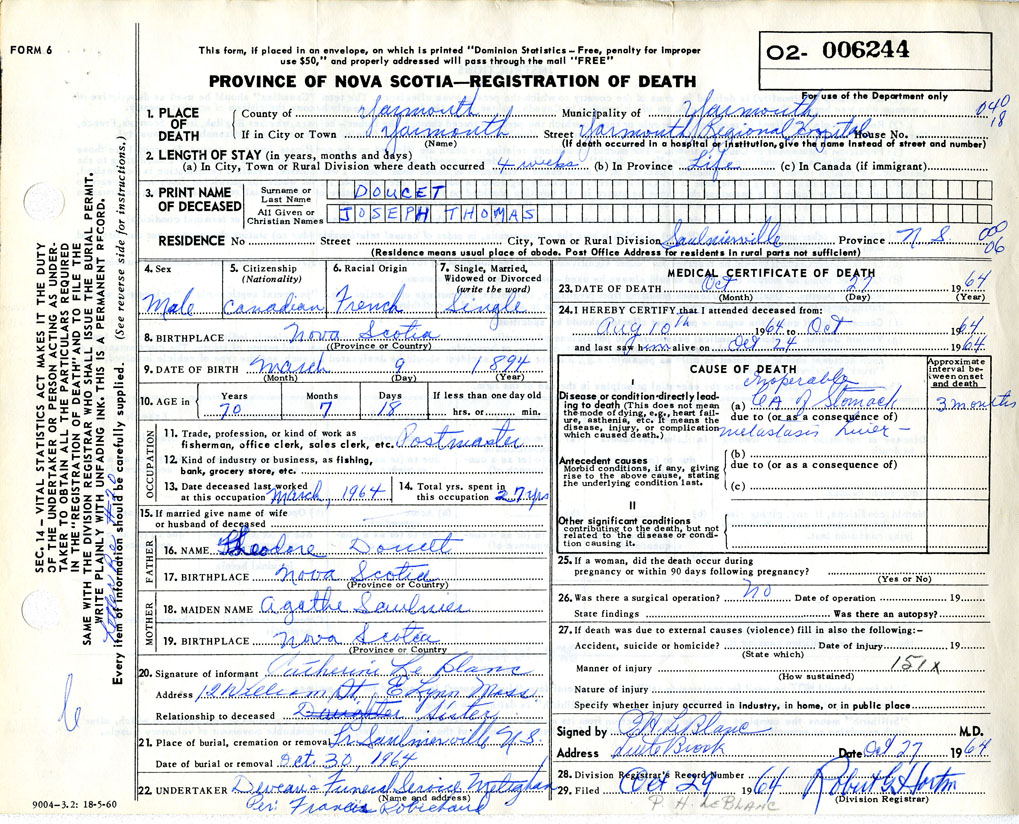 FORM 6
This form, if placed in an envelope, on which is printed "Dominion Statistics – Free, penalty for improper
use $50," and properly addressed will pass through the mail "FREE"
PROVINCE OF NOVA SCOTIA—REGISTRATION OF DEATH
O2- 006244
For use of the Department only
040
18
1. PLACE OF DEATH
County of Yarmouth Municipality of Yarmouth
If in City or Town Yarmouth Street Yarmouth Regional Hospital House No.
(Name) (If death occurred in a hospital or institution, give the name instead of street and number)
2. LENGTH OF STAY (in years, months and days)
(a) In City, Town or Rural Division where death occurred 4 weeks (b) In Province Life (c) In Canada (if immigrant)
3. PRINT NAME OF DECEASED
Surname or Last Name DOUCET
All Given or Christian Names JOSEPH THOMAS
RESIDENCE No Street City, Town or Rural Division Saulnierville Province N S
000
06
(Residence means usual place of abode. Post Office Address for residents in rural parts not sufficient)
4. Sex
Male
5. Citizenship
(Nationality)
Canadian
6. Racial Origin
French
7. Single, Married,
Widowed or Divorced
(write the word)
Single
8. BIRTHPLACE Nova Scotia
(Province or Country)
9. DATE OF BIRTH March 9 1894
(Month) (Day) (Year)
10. AGE in
Years Months Days If less than one day old
70 7 18 hrs. or min.
OCCUPATION
11. Trade, profession, or kind of work as
fisherman, office clerk, sales clerk, etc. Postmaster
12. Kind of industry or business, as fishing,
bank, grocery store, etc.
13. Date deceased last worked
at this occupation March, 1964
14. Total yrs. spent in
this occupation 27 yrs
15. If married give name of wife
or husband of deceased
FATHER
16. NAME Theodore Doucett
17. BIRTHPLACE Nova Scotia
(Province or Country)
MOTHER
18. MAIDEN NAME Agathe Saulnier
19. BIRTHPLACE Nova Scotia
(Province or Country)
20. Signature of informant Catherine Le Blanc
Address 12 William St. E Lynn Mass.
Relationship to deceased Daughter Sister
21. Place of burial, cremation or removal Saulnierville N.S
Date of burial or removal Oct. 30, 1964
22. UNDERTAKER Funeral Service Meteghan
(Name and address)
Per: Francis Robichaud
9004–3.2: 18-5-60
MEDICAL CERTIFICATE OF DEATH
23. DATE OF DEATH Oct 27 1964
(Month) (Day) (Year)
24. I HEREBY CERTIFY that I attended deceased from:
Aug 10th 1964 to Oct 1964
and last saw him alive on Oct 24 1964
CAUSE OF DEATH
Approximate
interval be-
tween onset
and death
I
Disease or condition directly lead-
ing to death (This does not mean
the mode of dying, e.g., heart fail-
ure, asthenia, etc. It means the
disease, injury, or complication
which caused death.)
Inoperable
(a) CA of Stomach 3 months
due to (or as a consequence of)
metastasis liver –
Antecedent causes
Morbid conditions, if any, giving
rise to the above cause, stating
the underlying condition last.
(b)
due to (or as a consequence of)
(c)
II
Other significant conditions
contributing to the death, but not
related to the disease or condi-
tion causing it.
25. If a woman, did the death occur during
pregnancy or within 90 days following pregnancy?
(Yes or No)
26. Was there a surgical operation? No Date of operation 19
State findings Was there an autopsy?
27. If death was due to external causes (violence) fill in also the following:–
Accident, suicide or homicide? Date of injury 19
(State which)
Manner of injury 151x
(How sustained)
Nature of injury
Specify whether injury occurred in industry, in home, or in public place
Signed by P.H. Le Blanc M.D.
Address Little Brook Date Oct 27 1964
28. Division Registrar's Record Number
29. Filed Oct 29 1964
(Division Registrar)
P. H. LeBLANC
SEC. 14 – VITAL STATISTICS ACT MAKES IT THE DUTY
OF THE UNDERTAKER OR PERSON ACTING AS UNDER-
TAKER TO OBTAIN ALL THE PARTICULARS REQUIRED
IN THE "REGISTRATION OF DEATH" AND TO FILE THE
SAME WITH THE DIVISION REGISTRAR WHO SHALL ISSUE THE BURIAL PERMIT.
WRITE PLAINLY WITH UNFADING INK. THIS IS A PERMANENT RECORD.
Every item of information should be carefully supplied. (See reverse side for instructions.)